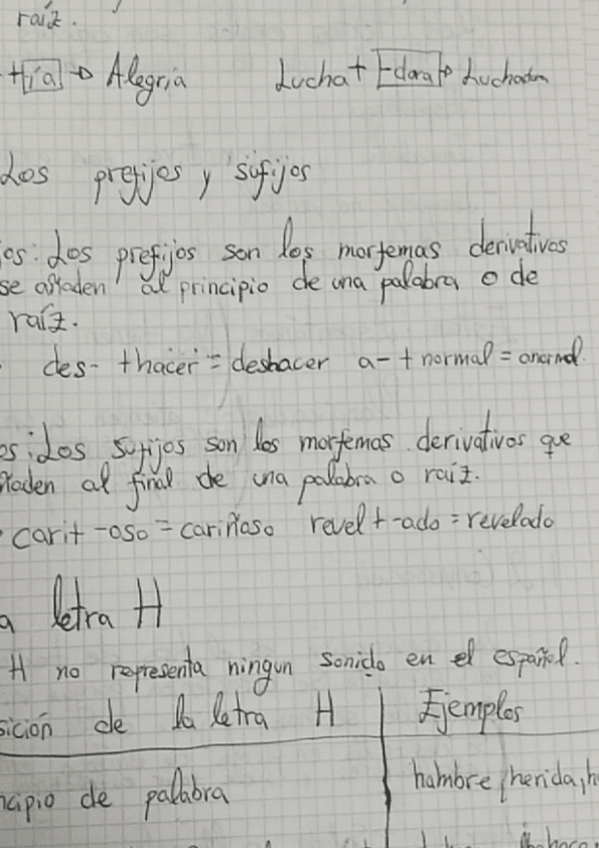 raíz.
+ía → Alegría Lucha + -dora → Luchadora
Los prefijos y sufijos
os: Los prefijos son los morfemas derivativos
se añaden al principio de una palabra o de
raíz.
des- + hacer = deshacer a- + normal = anormal.
os: Los sufijos son los morfemas derivativos que
ñaden al final de una palabra o raíz.
cari + -oso = cariñoso revel + -ado = revelado
a letra H
H no representa ningun sonido en el español.
sición de la letra H Ejemplos
ncipio de palabra hambre, herida, h